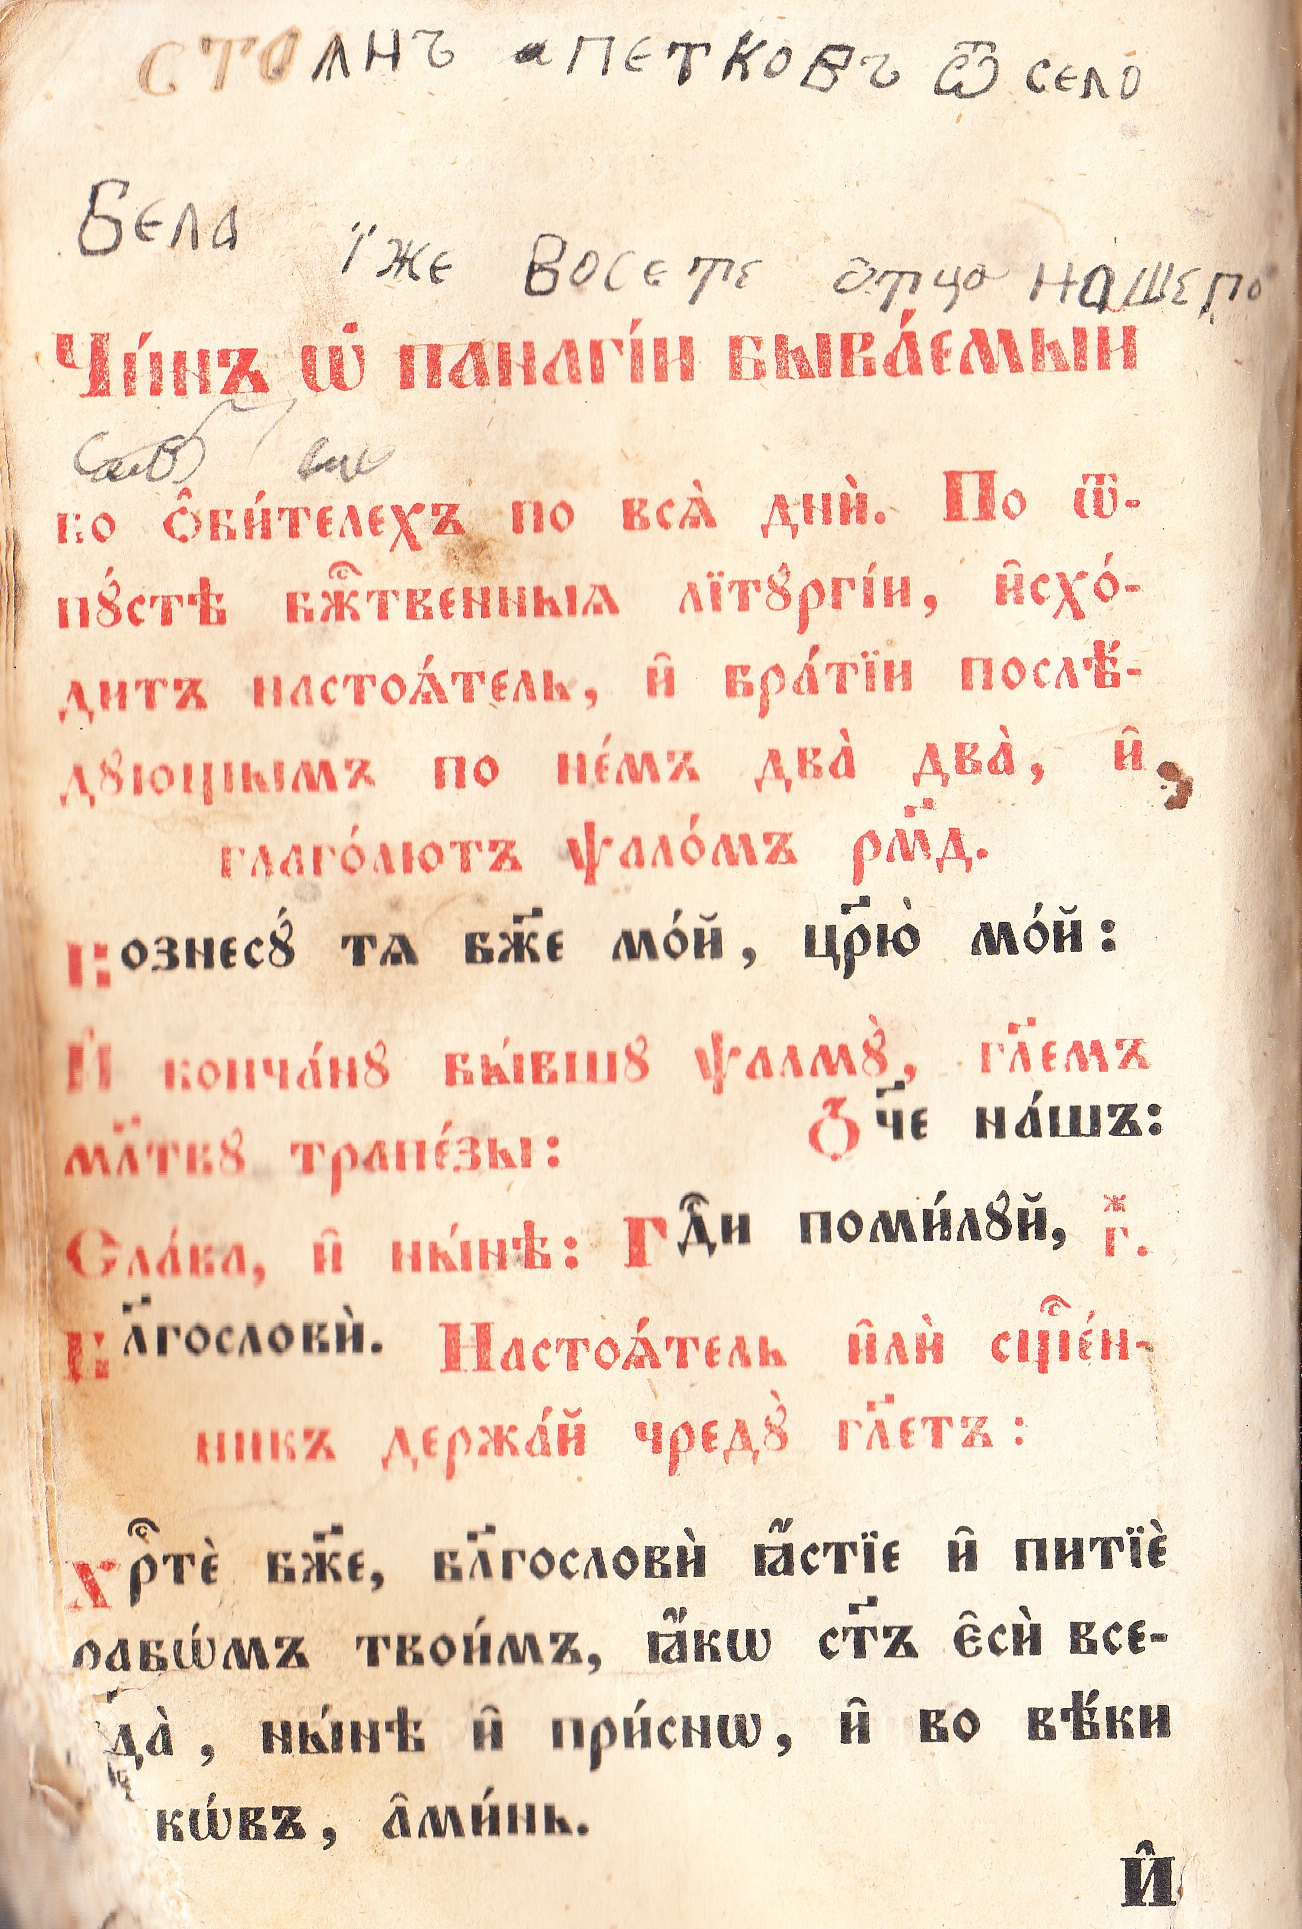 СТОАНЪ ПЕТКОВЪ Ѿ СЕЛО
БЕЛА
їже восете отца нашего
Чи́нъ ѡ҆ панагі́и быва́емыи
во ѻ҆би́телехъ по всѧ̀ днѝ. По ѿ-
пꙋ́стѣ бж҇твенныѧ лїтꙋргі́и, и҆схо́-
дитъ настоѧ́тель, и҆ бра́тїи послѣ́-
дꙋющымъ по не́мъ два̀ два̀, и҆
глаго́лютъ ѱало́мъ рм҃д.
Вознесꙋ́ тѧ бж҃е мо́й, цр҃ю̀ мо́й:
И҆ конча́нꙋ бы́вшꙋ ѱалмꙋ̀, гл҃емъ
мл҃твꙋ трапе́зы: Ѻ҆ч҃е на́шъ:
Сла́ва, и҆ ны́нѣ: Гдⷭ҇и поми́лꙋй, гⷤ.
Бл҃гословѝ. Настоѧ́тель и҆лѝ сщ҇е́н-
никъ держа́й чредꙋ̀ гл҃етъ:
Хрⷭ҇тѐ бж҃е, бл҃гословѝ ꙗ҆́стїе и҆ питїѐ
рабѡ́мъ твои́мъ, ꙗ҆́кѡ ст҃ъ є҆сѝ все-
г҃да̀, ны́нѣ и҆ при́снѡ, и҆ во вѣ́ки
кѡ́въ, а҆ми́нь.
И҆